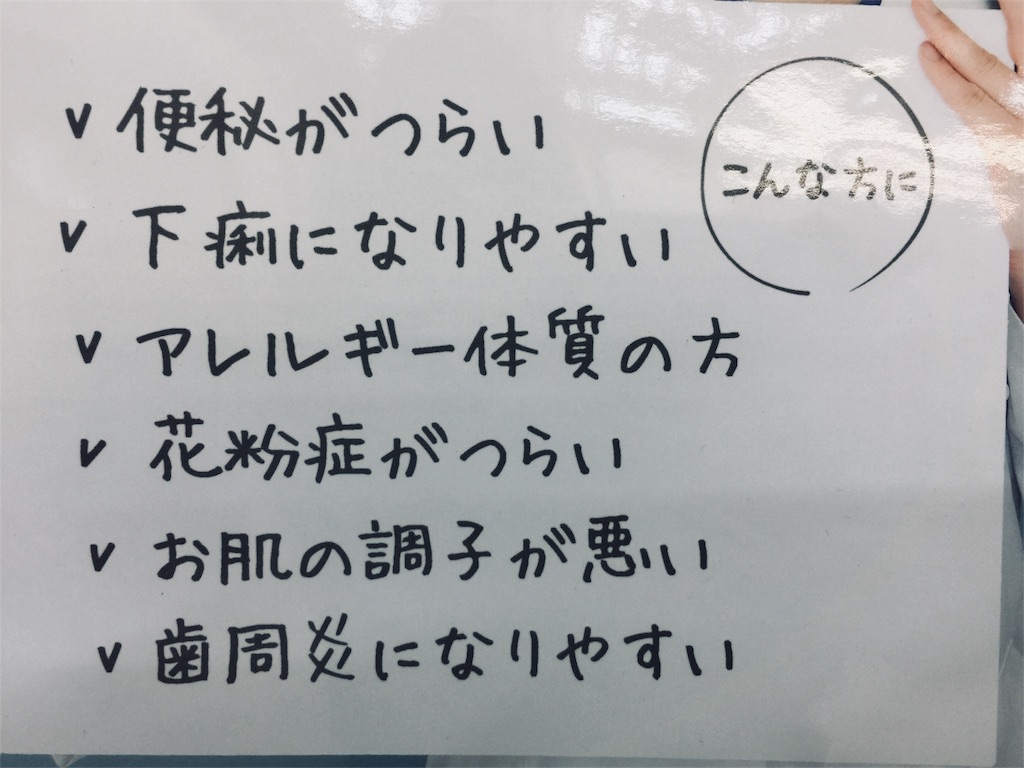 こんな方に
v 便秘がつらい
v 下痢になりやすい
v アレルギー体質の方
v 花粉症がつらい
v お肌の調子が悪い
v 歯周炎になりやすい